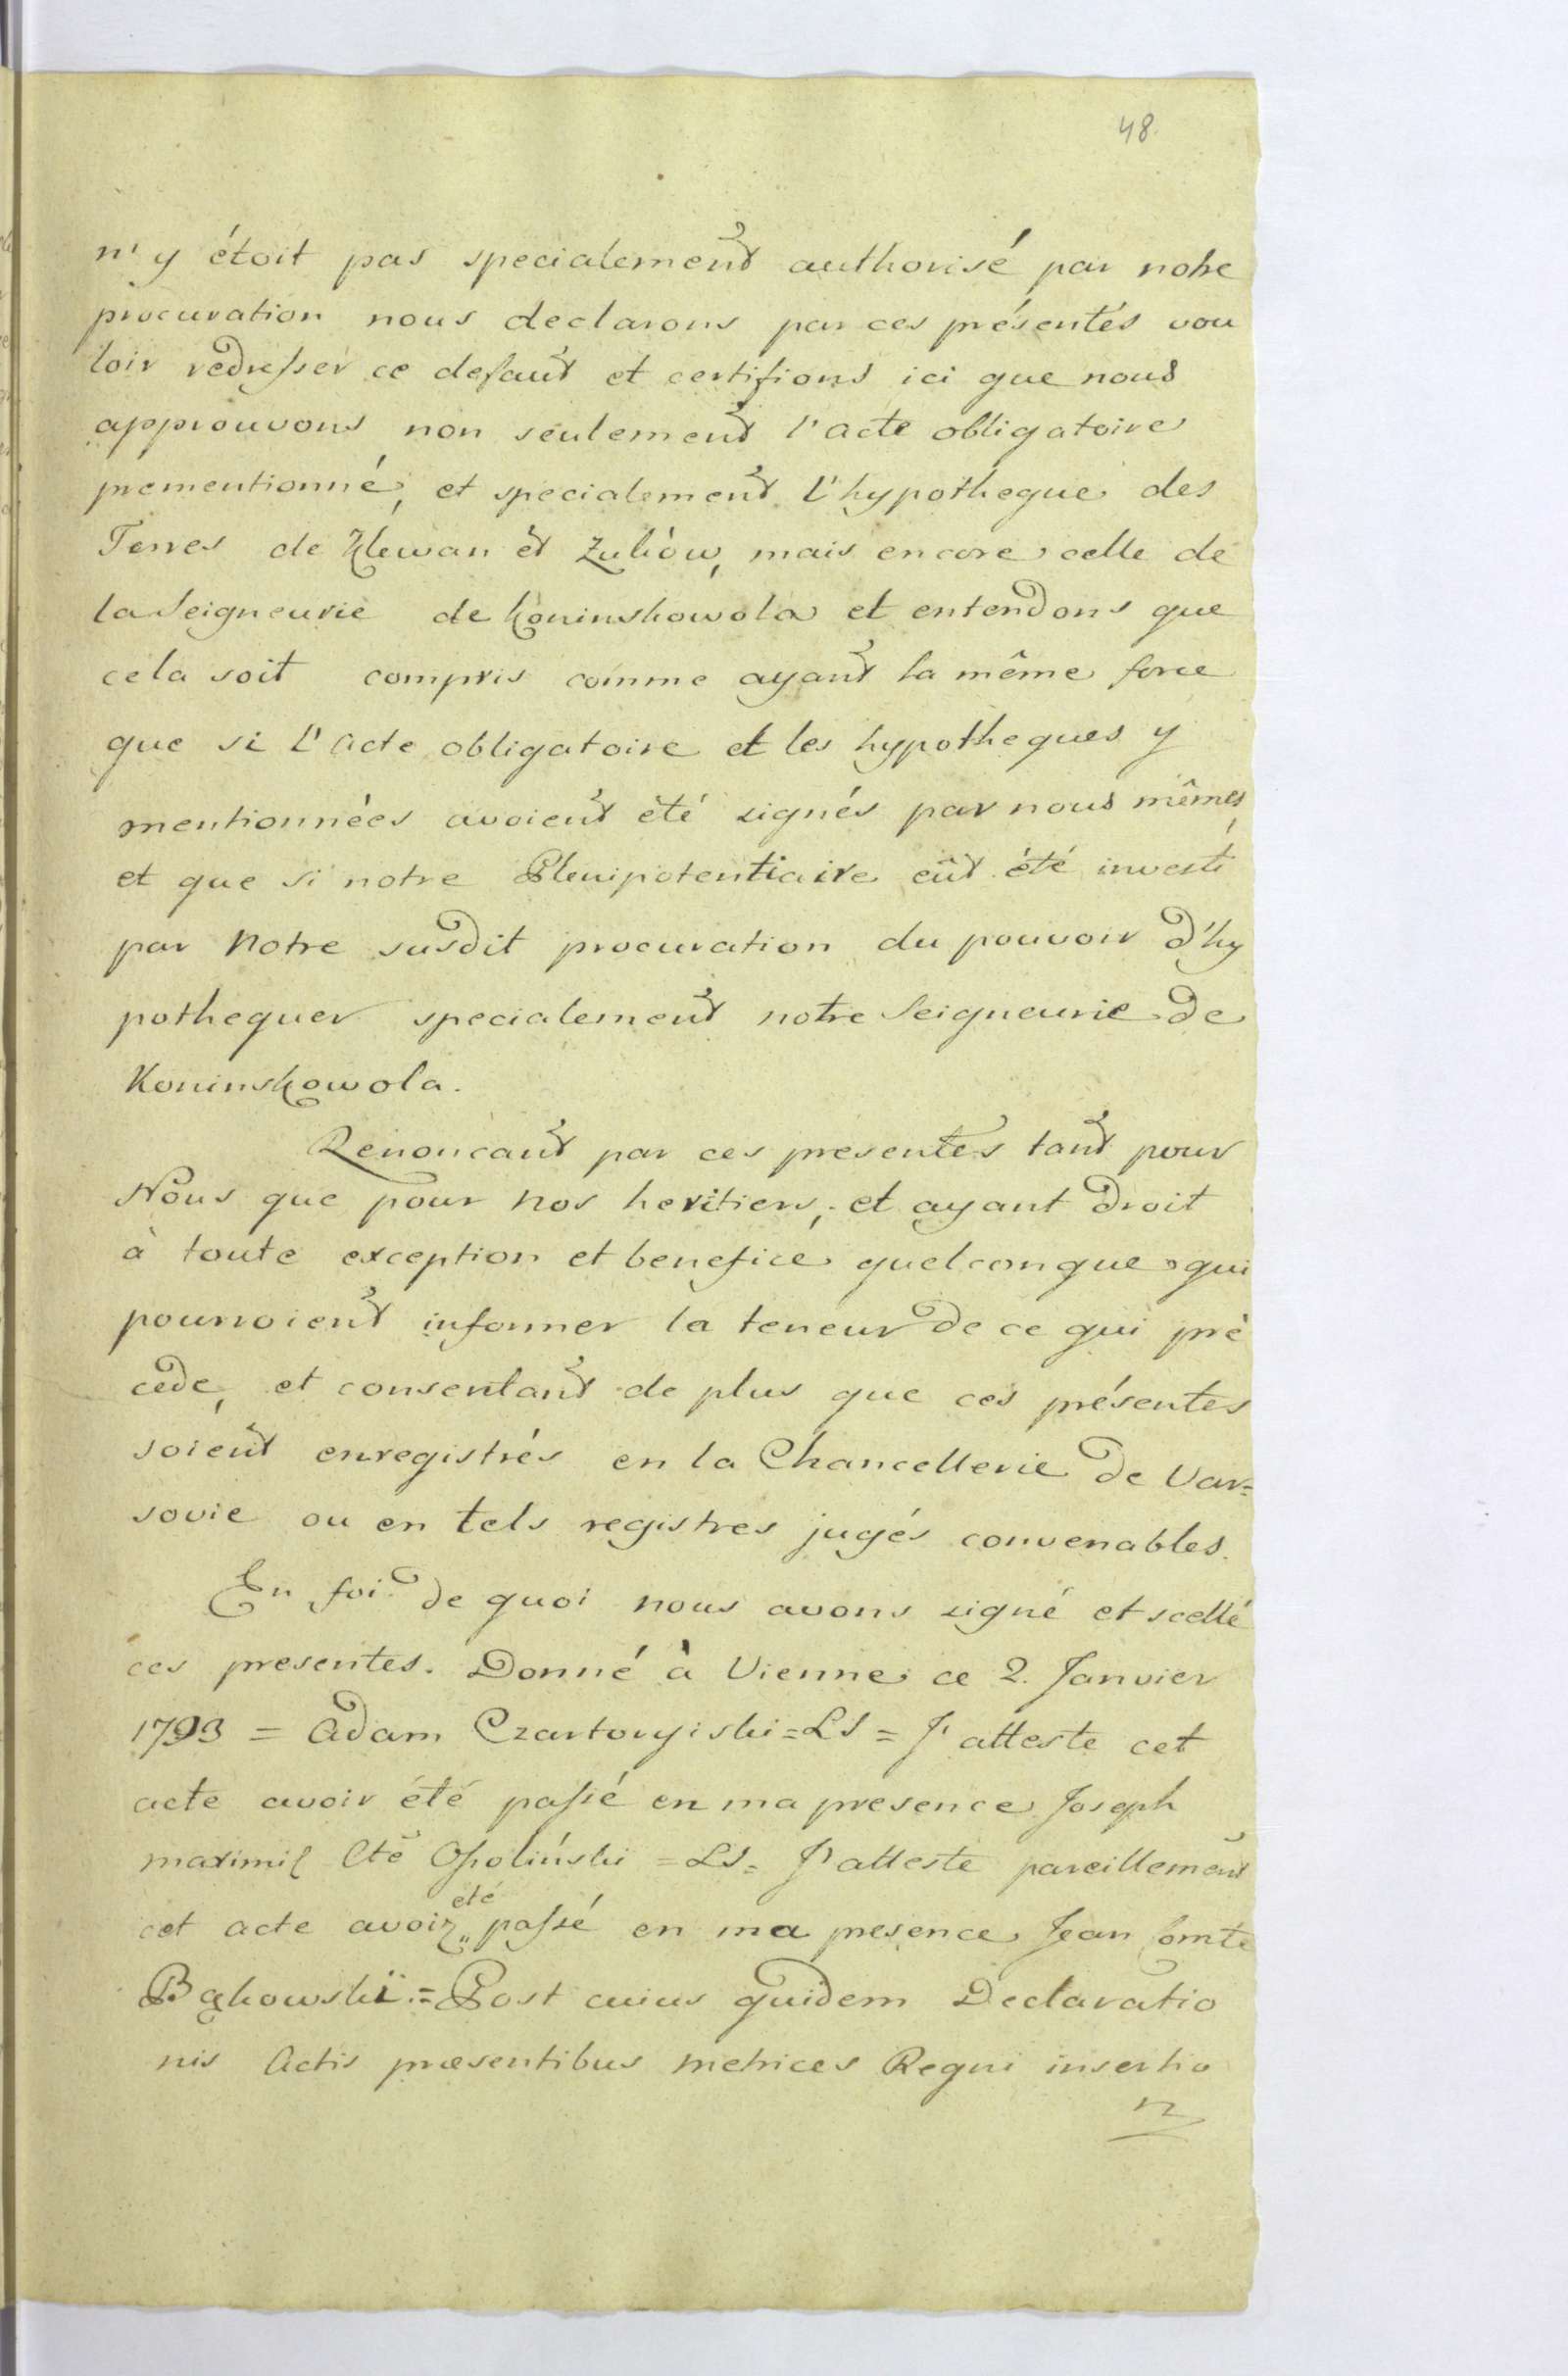 48.
n'y étoit pas specialement authorisé par notre
procuration nous declarons par ces présentés vou
loir redresser ce defaut et certifions ici que nous
approuvons non seulement l'acte obligatoire
prementionné, et specialement l'hypotheque des
Terres de Klewan et Zuków, mais encore celle de
la Seigneurie de Koninskowola et entendons que
cela soit compris comme ayant la même force
que si l'acte obligatoire et les hypotheques y
mentionnées avoient été signés par nous mêmes,
et que si notre Plenipotentiaire eût été investi
par Notre susdit procuration du pouvoir d'hy
pothequer specialement notre Seigneurie de
Koninskowola.
Renoncant par ces presentes tant pour
Nous que pour nos heritiers, et ayant droit
à toute exception et benefice quelconque qui
pourroient informer la teneur de ce qui pré
cede, et consentant de plus que ces présentes
soient enregistrés en la Chancellerie de Var=
sovie ou en tels registres jugés convenables.
En foi de quoi nous avons signé et scellé
ces presentes. Donné à Vienne ce 2. Janvier
1793 = Adam Czartoryiski = LS = J'atteste cet
acte avoir été passé en ma presence Joseph
maximil Cte Opoliński = LS = J'atteste pareillement
cet acte avoir été passé en ma presence Jean Comte
Bąkowski = Post cuius quidem Declaratio
nis Actis præsentibus metrices Regni insertio
n